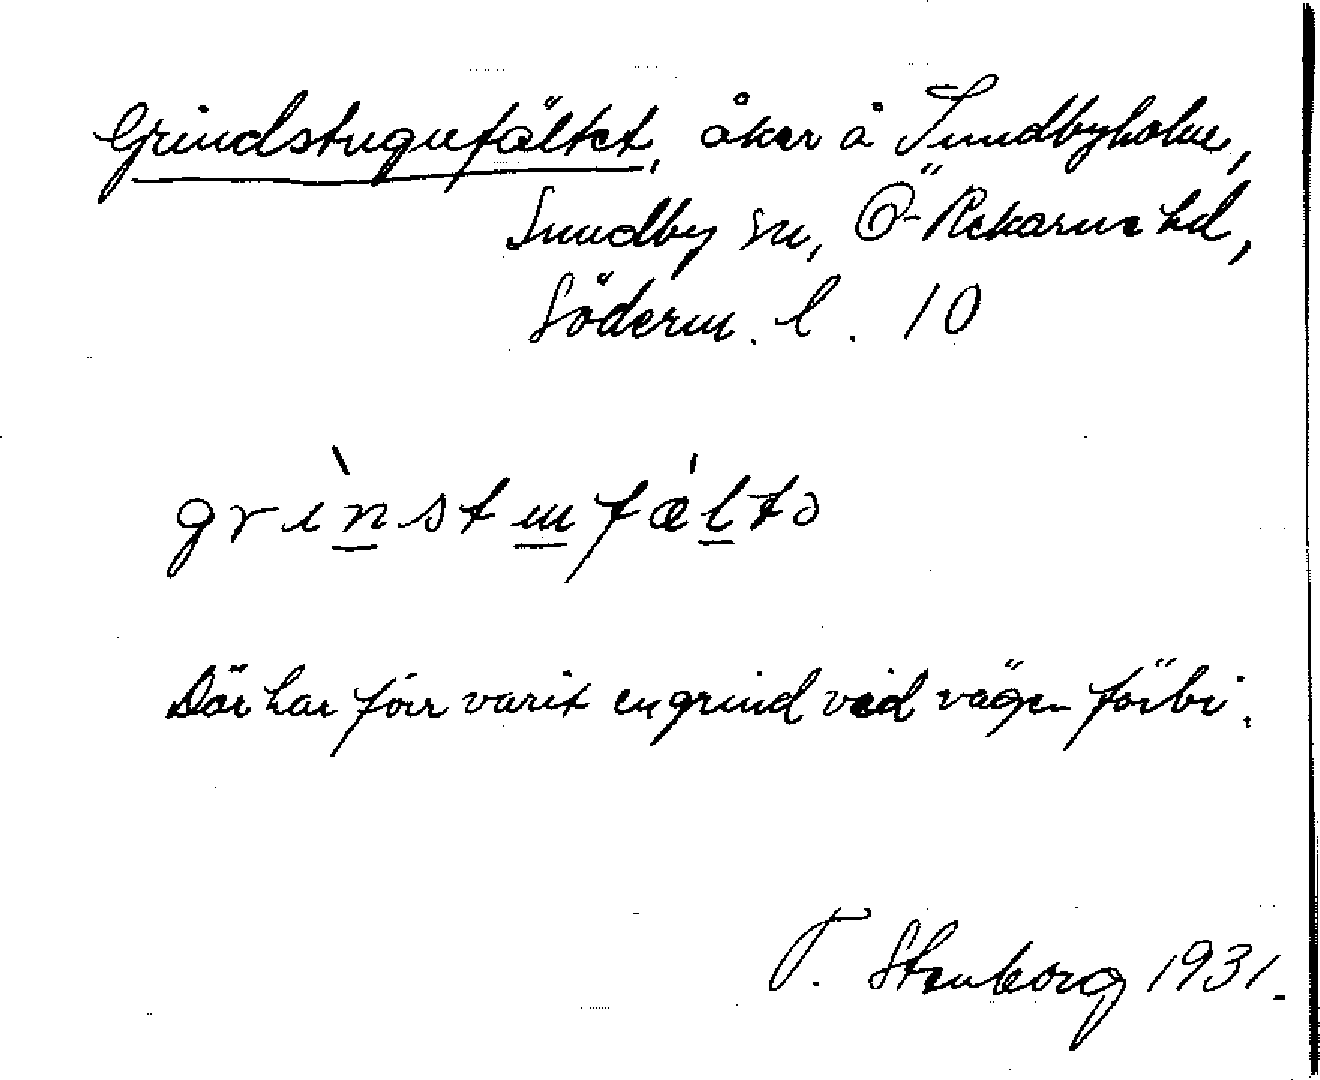 Grindstugufältet, åker å Sundbyholm,
Sundby sn, Ö-Rekarne hd,
Söderm. l. 10
grìnstɯfál̲tə
Där har förr varit en grind vid vägen förbi.
T. Stenborg 1931.